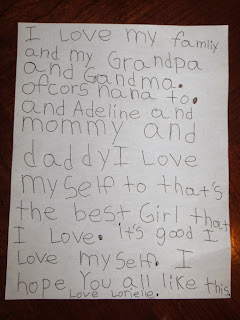 I Love my famliy
and my Grandpa
and Gandma.
ofcors nana to.
and Adeline and
mommy and
daddy I Love
my self to that's
the best Girl that
I Love. It's good I
Love my self. I
hope You all like this
Love Lorielle.